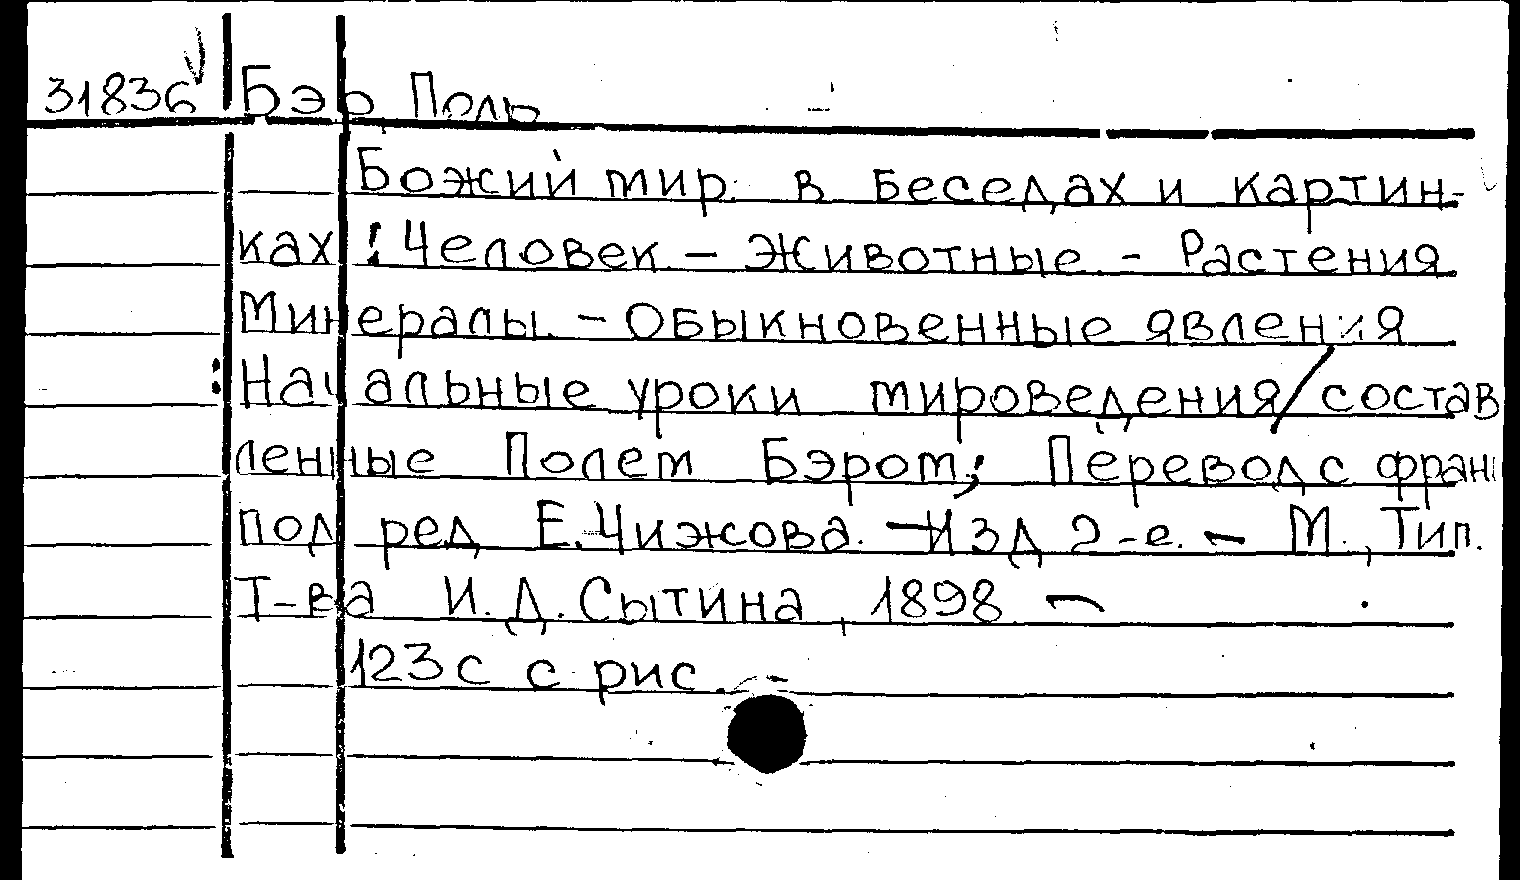 31836 Бэр Поль
Божий мир в беседах и картин-
ках: Человек - Животные - Растения
Минералы - Обыкновенные явления
: Начальные уроки мироведения / состав
ленные Полем Бэром; Перевод с фран
под ред Е.Чижова. - Изд 2-е. - М., Тип.
Т-ва И.Д.Сытина, 1898 -
123с с рис.